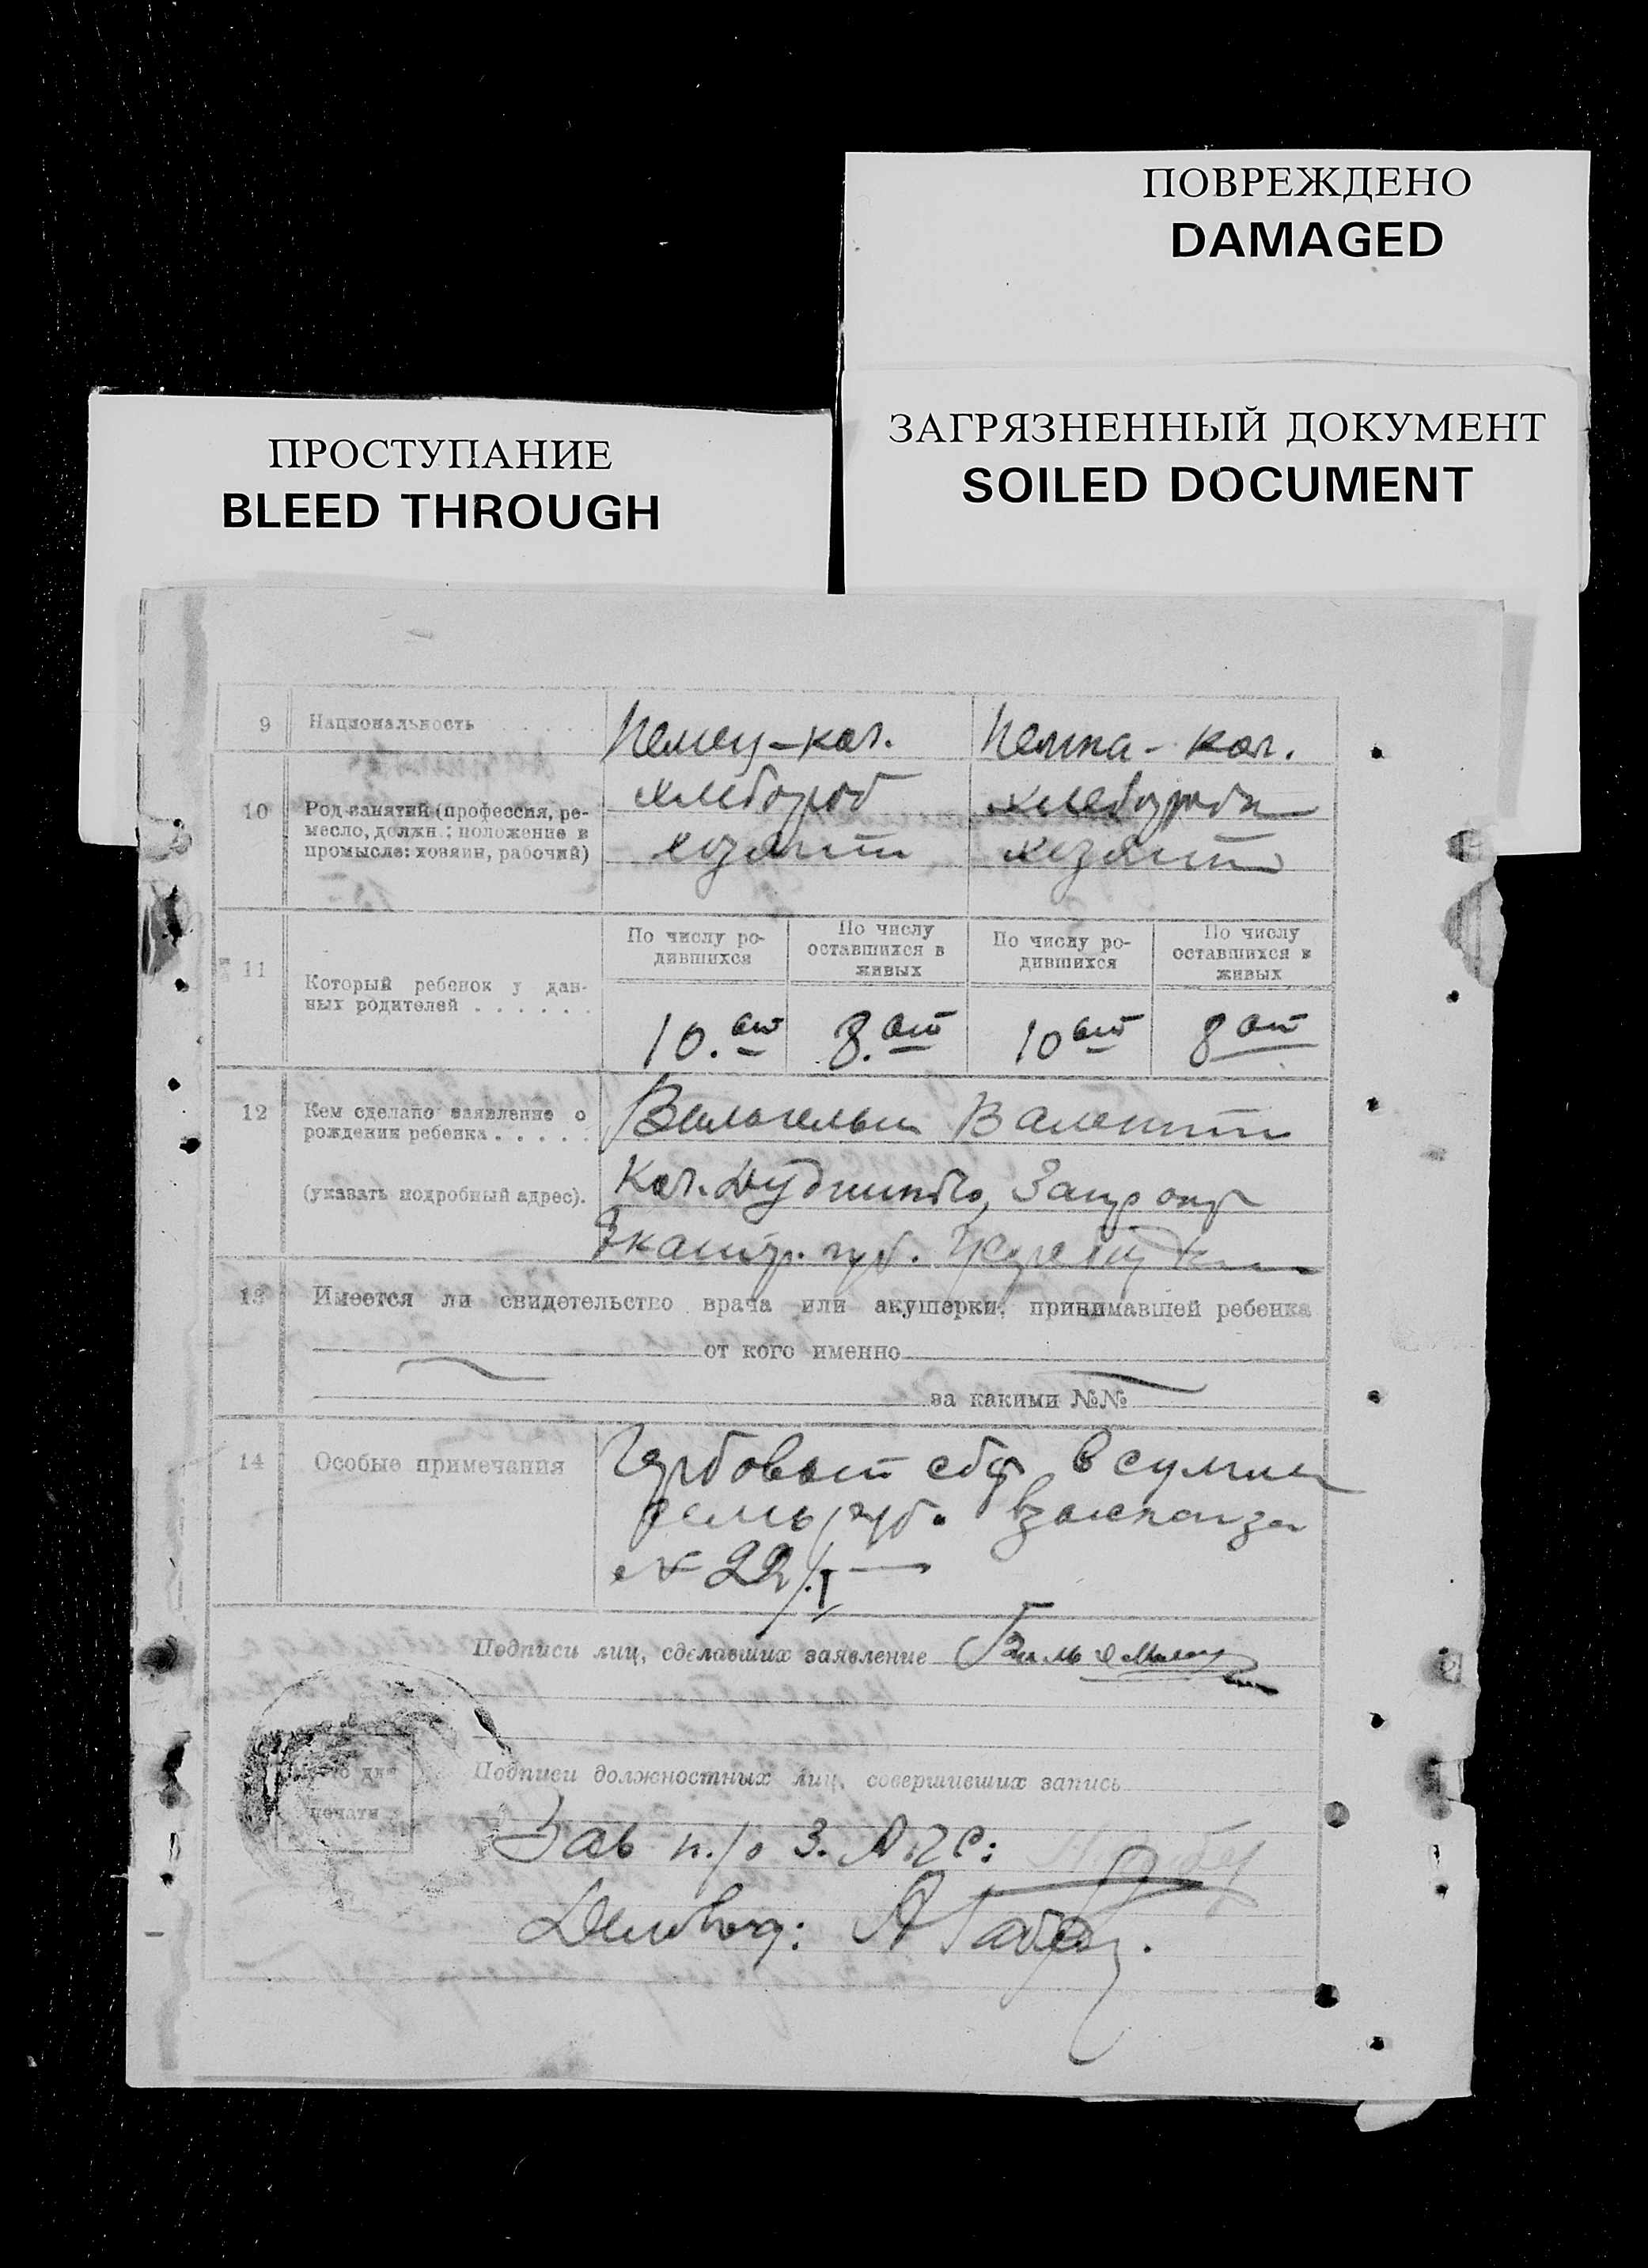 ПОВРЕЖДЕНО
DAMAGED
ЗАГРЯЗНЕННЫЙ ДОКУМЕНТ
SOILED DOCUMENT
ПРОСТУПАНИЕ
BLEED THROUGH
9 Национальность . . . . Немец-кол. Немка-кол.
10 Род занятий (профессия, ре-
месло, должн.; положение в
промысле: хозяин, рабочий)
хлебороб хлебороб
хозяин хозяин
11 Который ребенок у дан-
ных родителей . . . . . .
По числу ро-
дившихся
По числу
оставшихся в
живых
По числу ро-
дившихся
По числу
оставшихся в
живых
10.ый 8.ой 10ый 8ой
12 Кем сделано заявление о
рождении ребенка . . . . .
Валентин
(указать подробный адрес).
Кол. Запор окр
Екатер. губ.
13 Имеется ли свидетельство врача или акушерки, принимавшей ребенка
от кого именно
за какими №№
14 Особые примечания
Гербовый сбор в сумме
руб. взыскан за
№ 22/I
Подписи лиц, сделавших заявление
Подписи должностных лиц, совершивших запись
Место для
печати
Зав п/о З.А.Г.С:
Делопр: